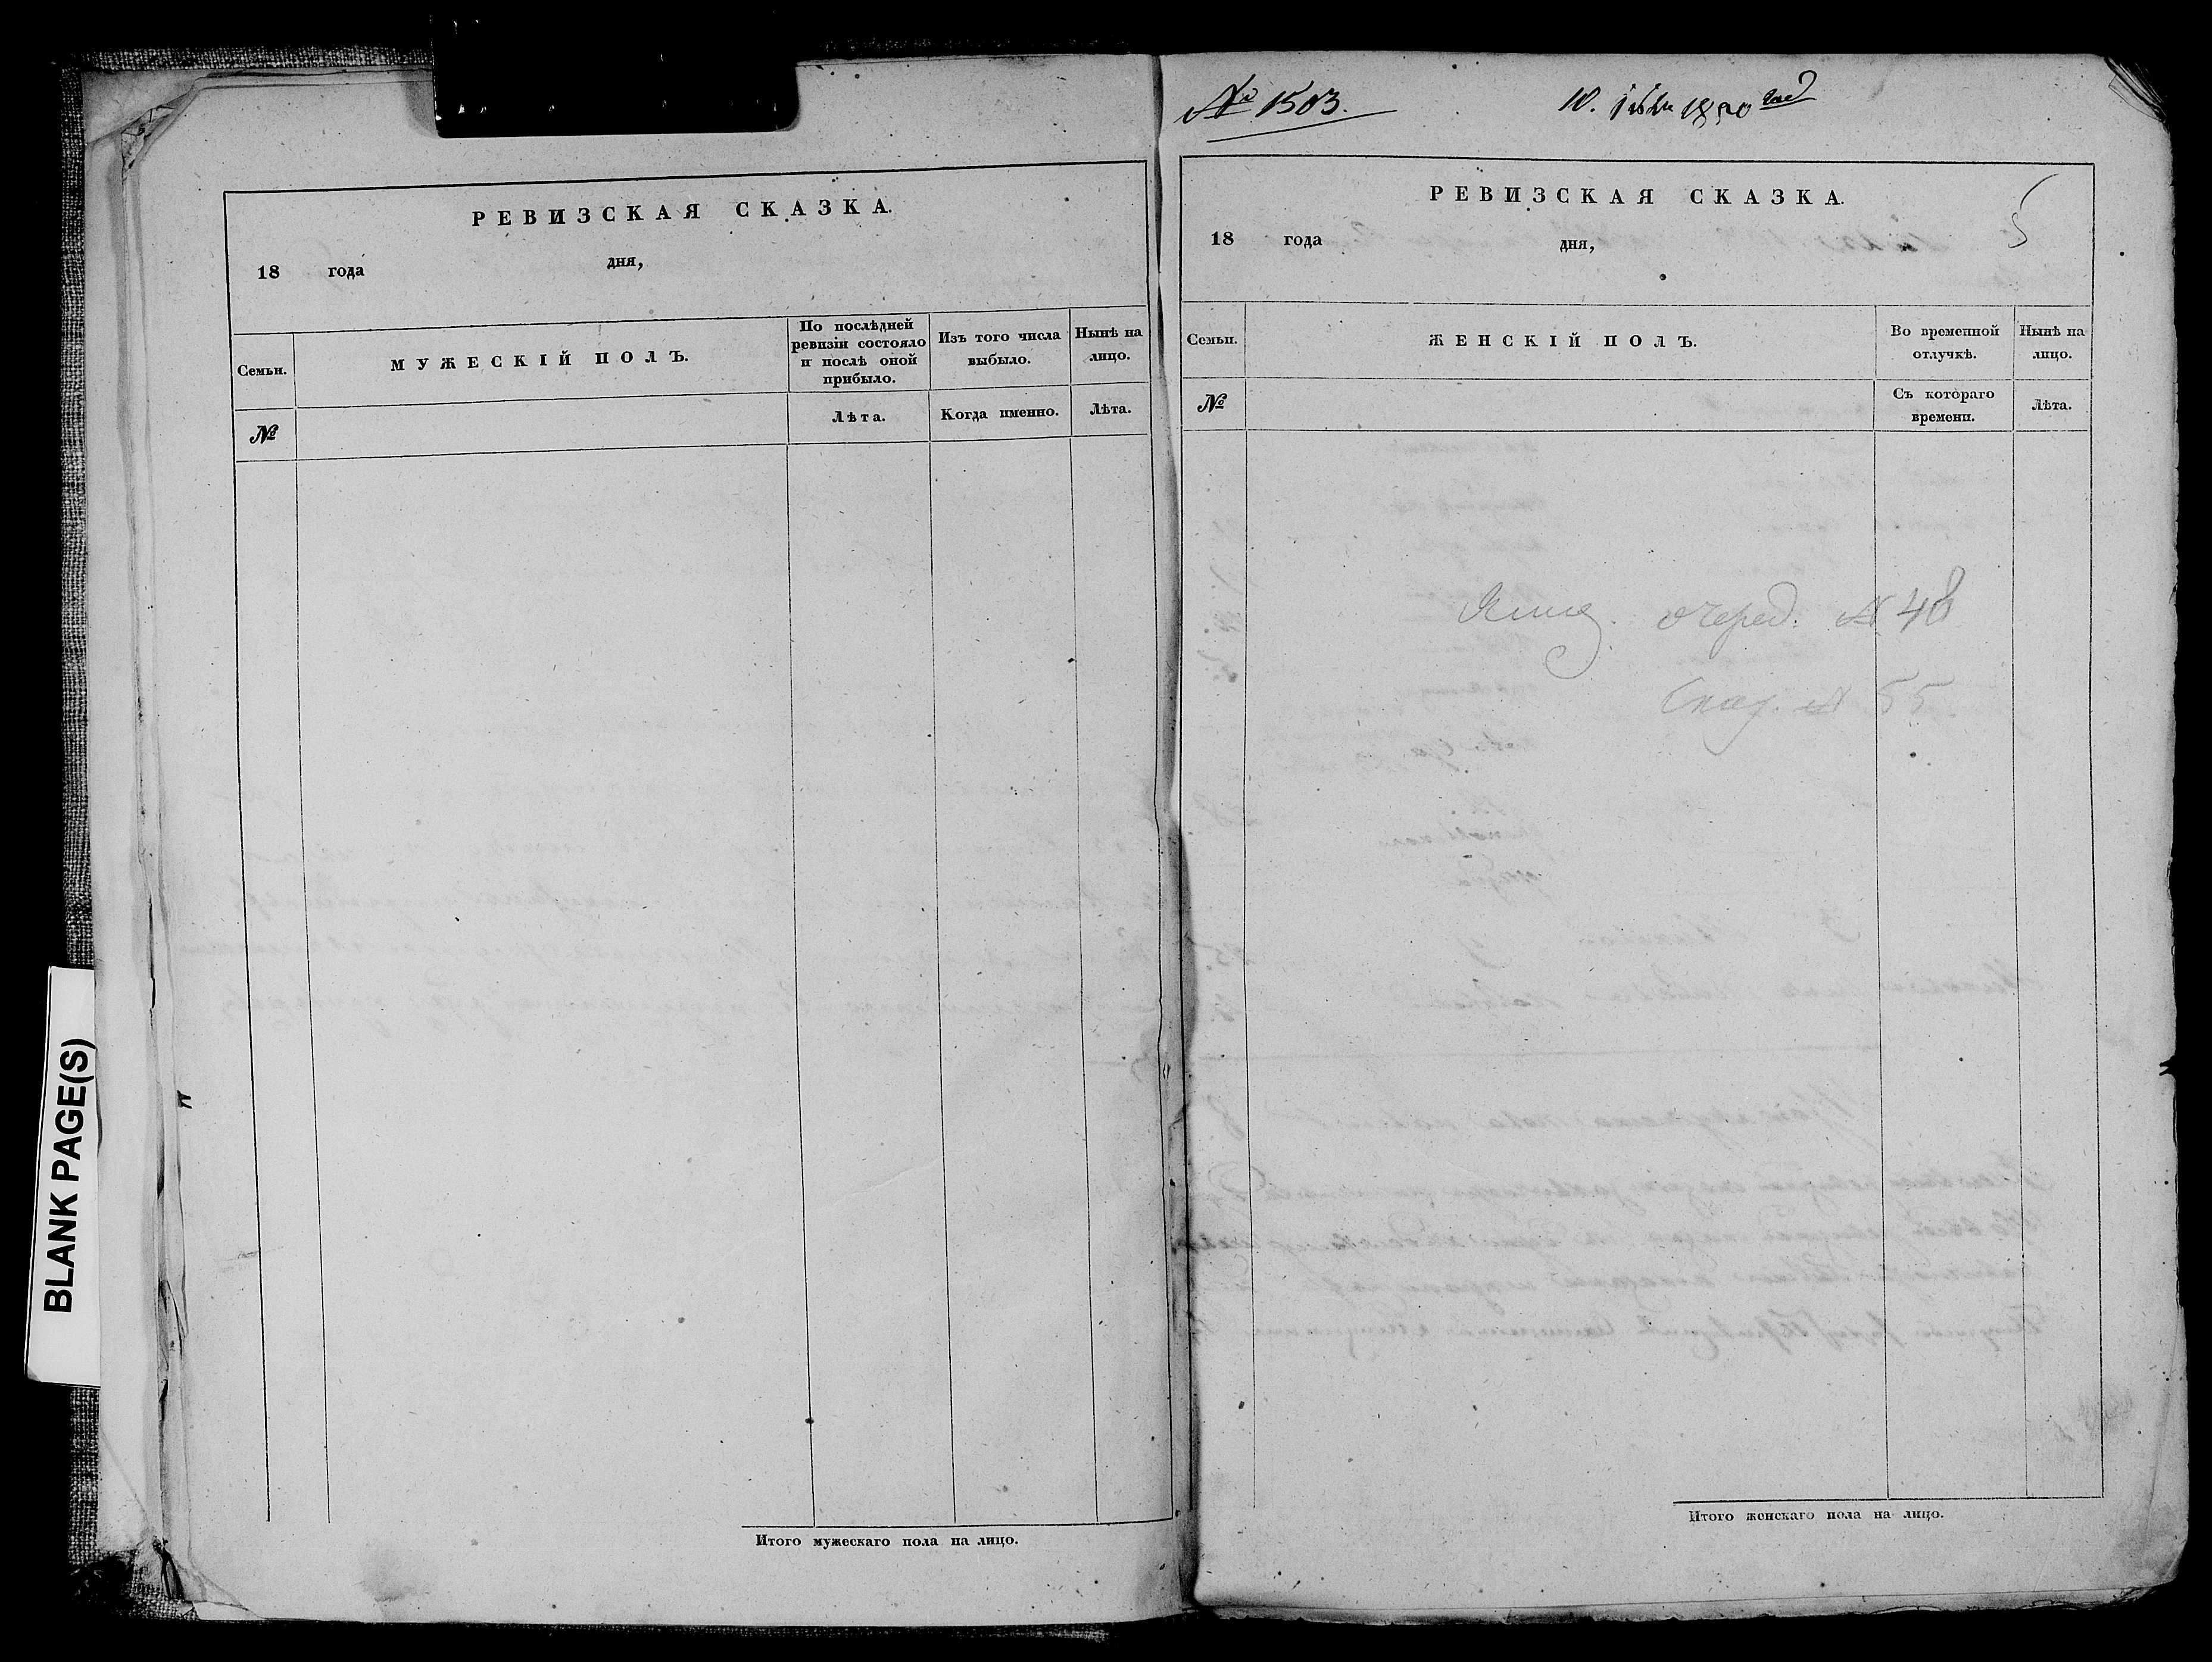 BLANK PAGE(S)
РЕВИЗСКАЯ СКАЗКА.
18 года дня,
Семьи.
МУЖЕСКІЙ ПОЛЪ.
По послѣдней
ревизіи состояло
и послѣ оной
прибыло.
Изъ того числа
выбыло.
Нынѣ на
лицо.
№
Лѣта.
Когда именно.
Лѣта.
Итого мужескаго пола на лицо.
№ 1503.
10. 1850 год
РЕВИЗСКАЯ СКАЗКА.
5
18 года дня,
Семьи.
ЖЕНСКІЙ ПОЛЪ.
Во временной
отлучкѣ.
Нынѣ на
лицо.
№
Съ котораго
времени.
Лѣта.
очеред. № 48
Сказ. № 55
Итого женскаго пола на лицо.